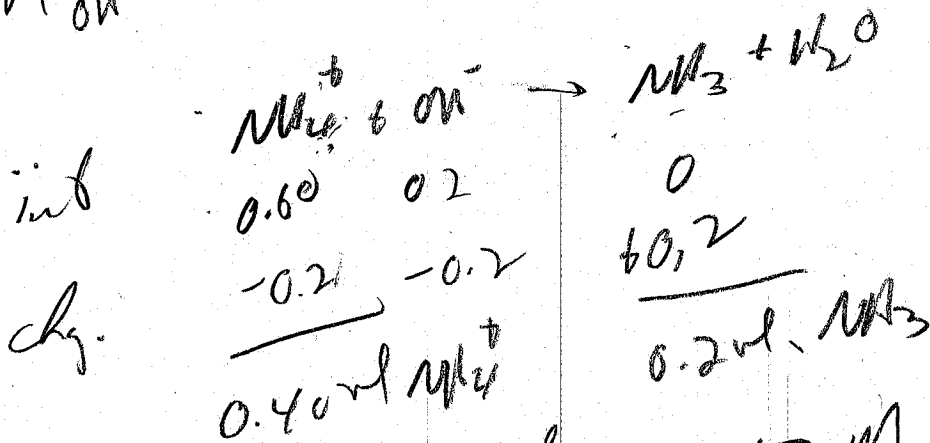 OH
NH₄⁺ + OH⁻ → NH₃ + H₂O
init 0.60 0 2 0
chg. -0.2 -0.2 +0,2
0.40 ml NH₄⁺ 0.2 ml. NH₃